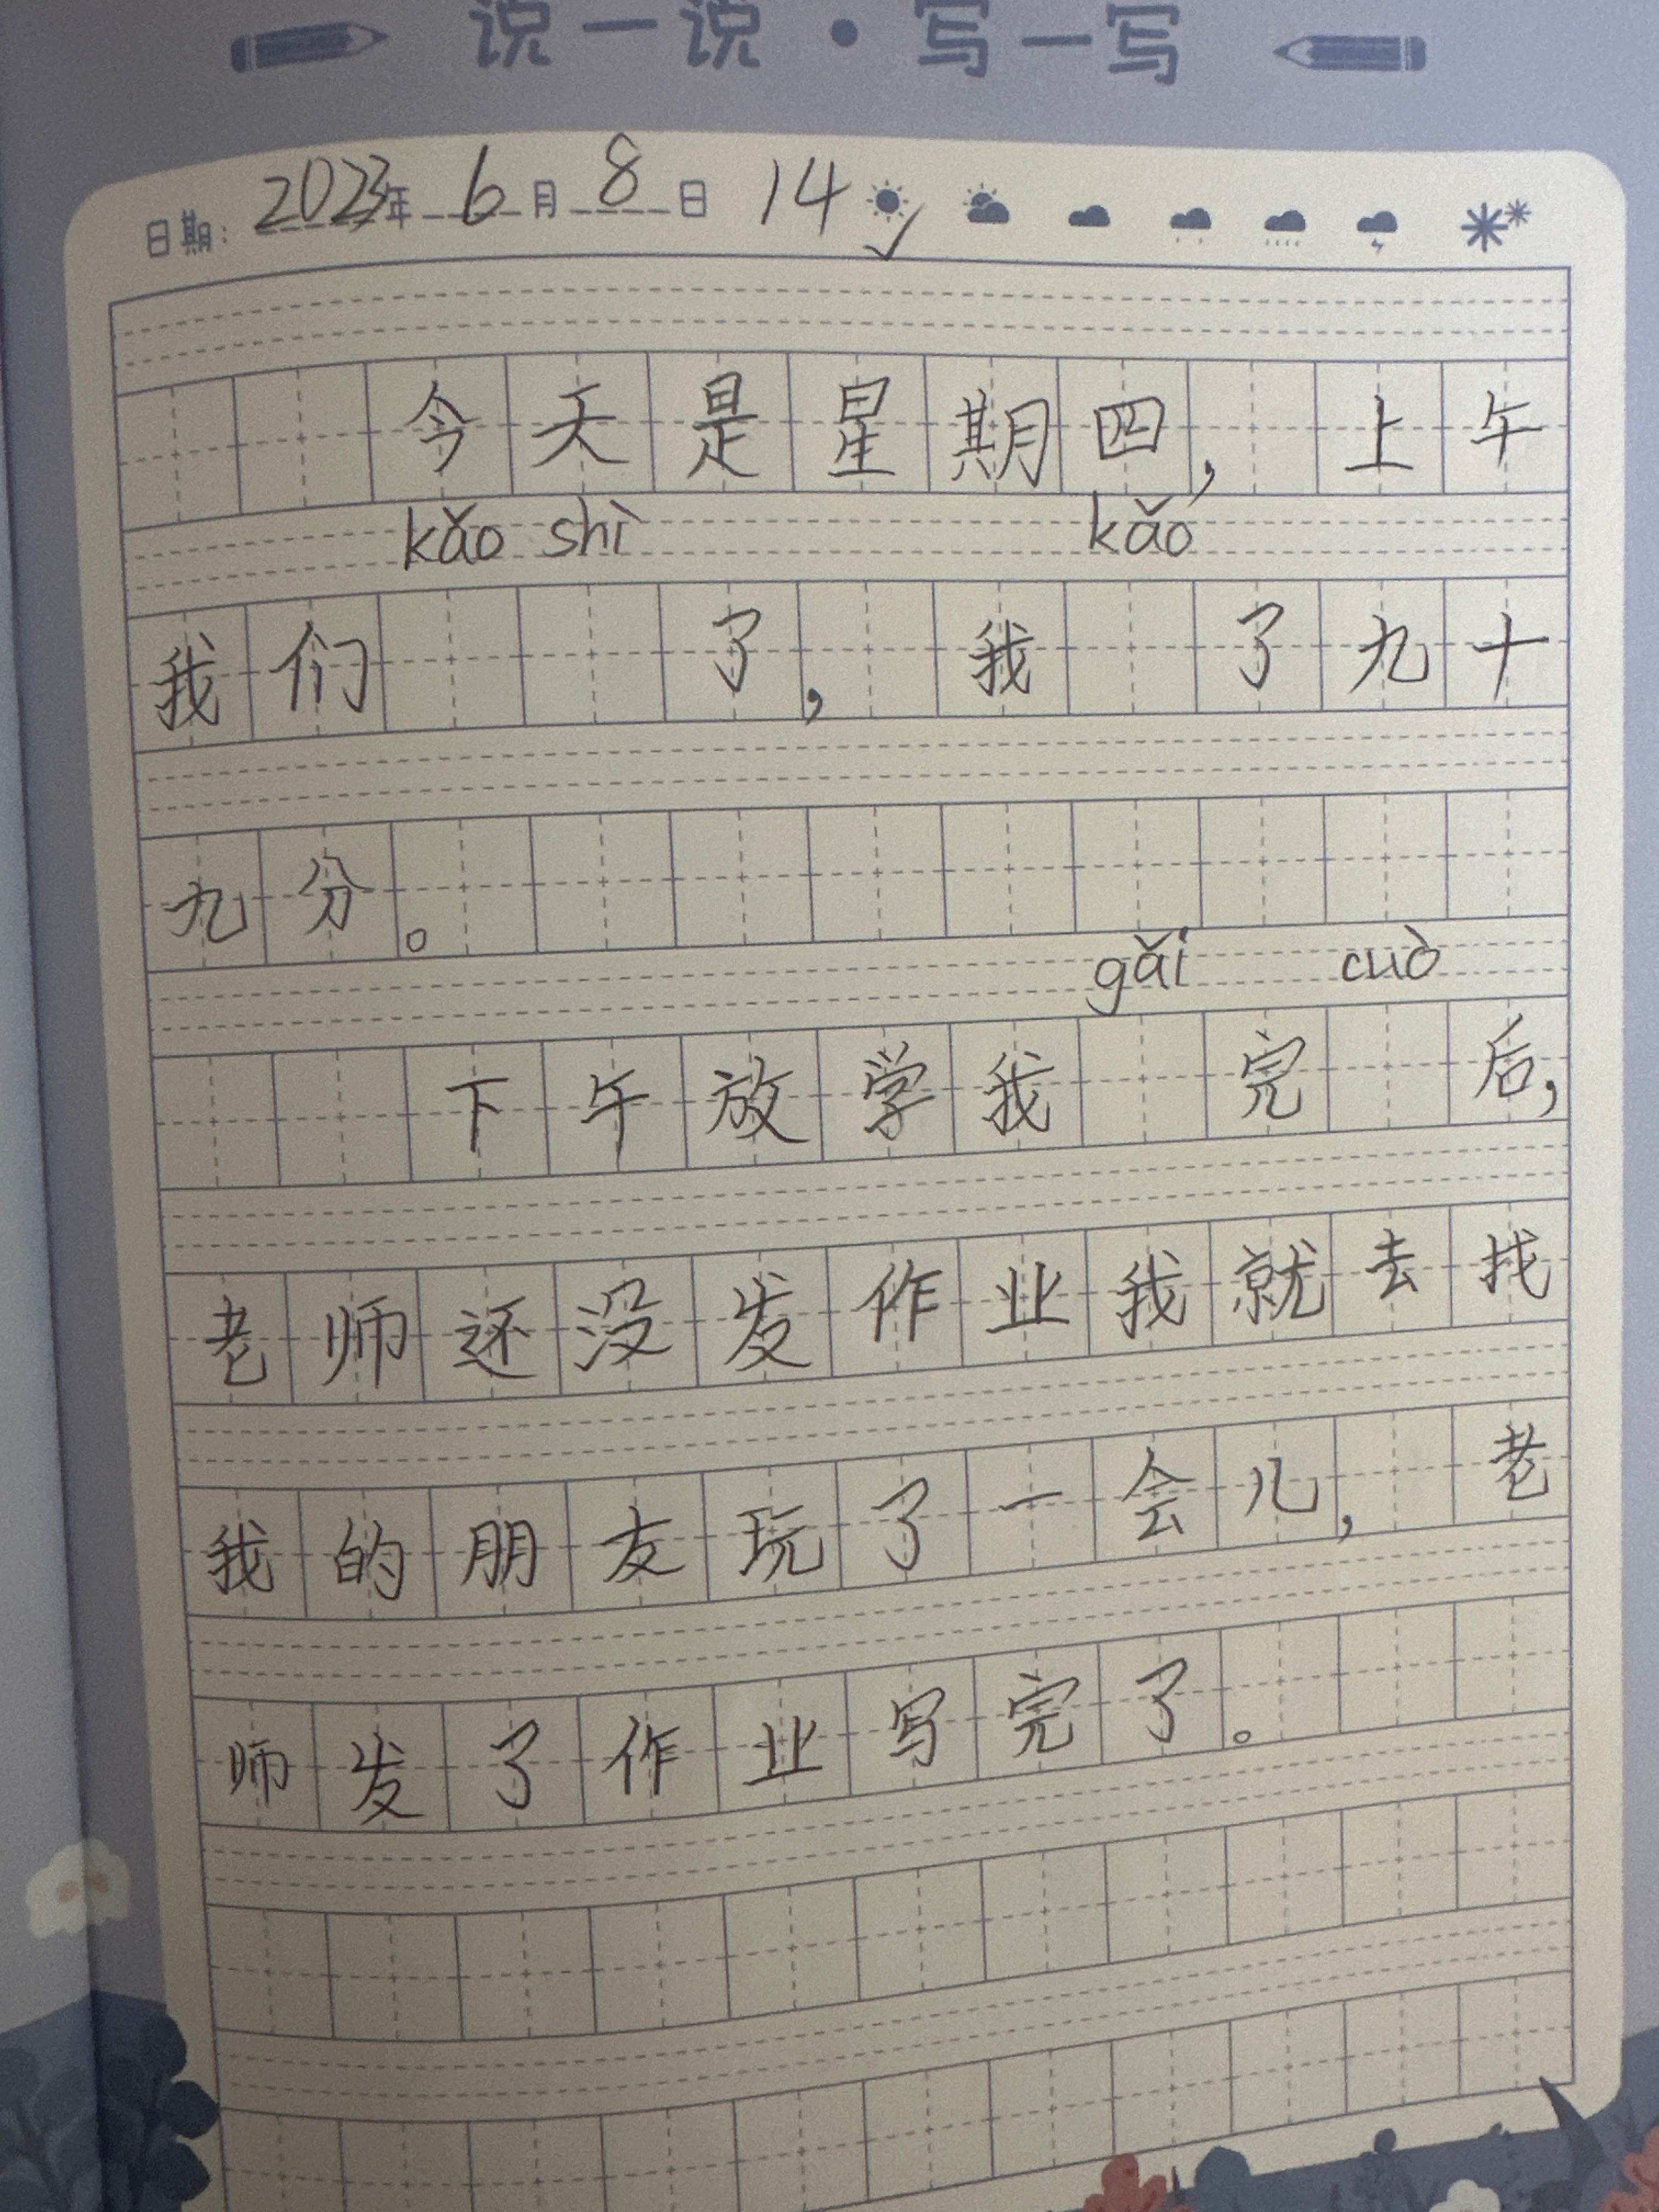 说一说·写一写
日期: 2023年 6月 8日 14
今天是星期四,上午
kǎo shì kǎo
我们 了,我 了九十
九分。
gǎi cuò
下午放学我 完 后,
老师还没发作业我就去找
我的朋友玩了一会儿,老
师发了作业写完了。